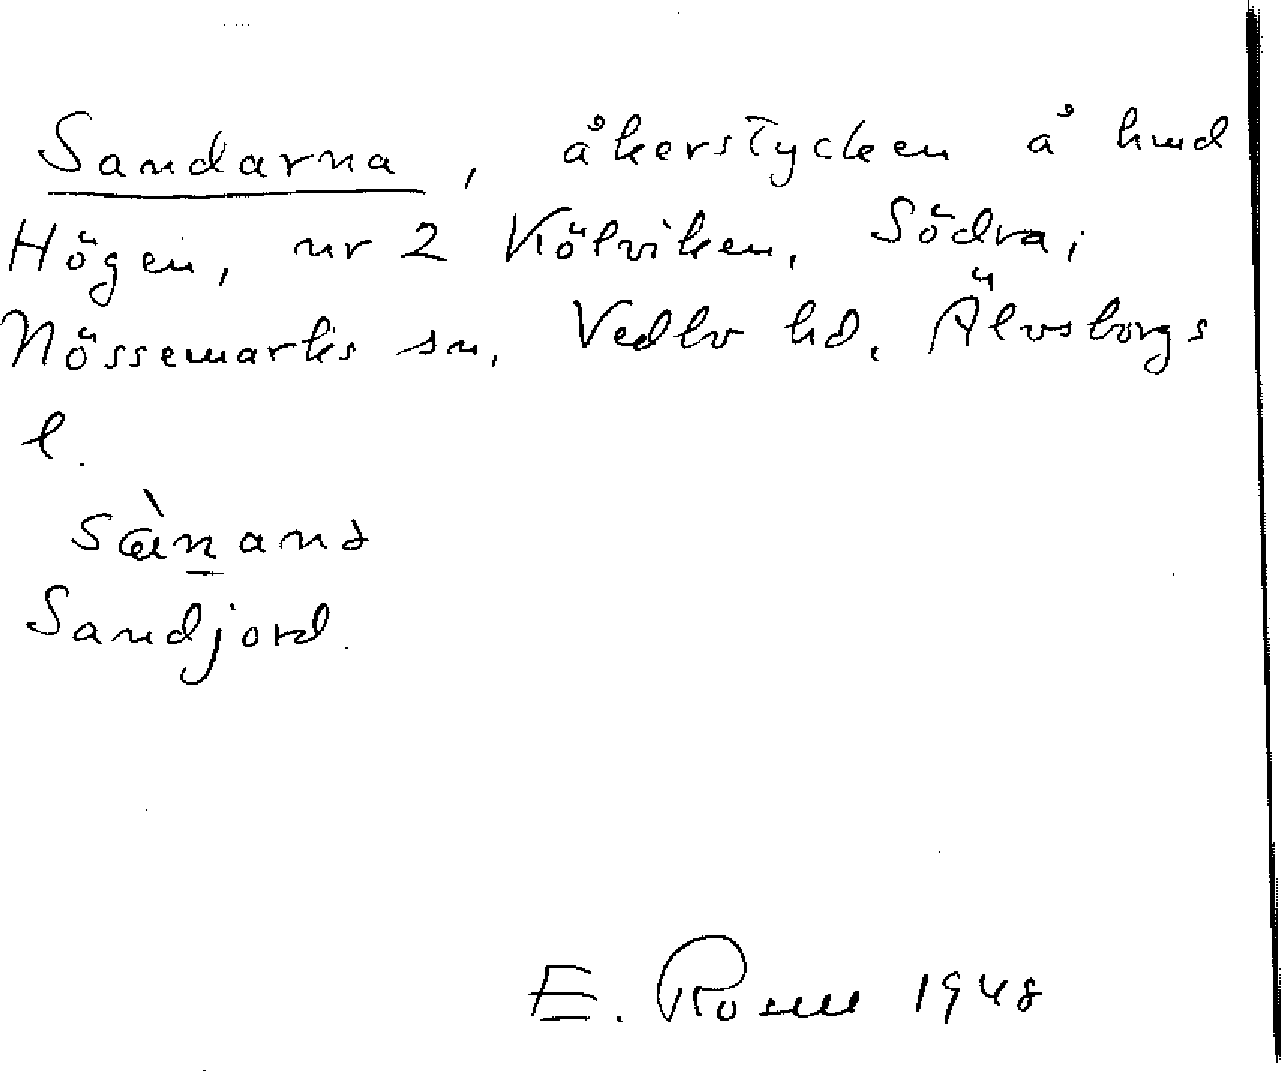 Sandarna, åkerstycken å hmd
Högen, nr 2 Kölviken, Södra,
Nössemarks sn, Vedbo hd, Älvsborgs
l.
Sandjord.
E. 1948